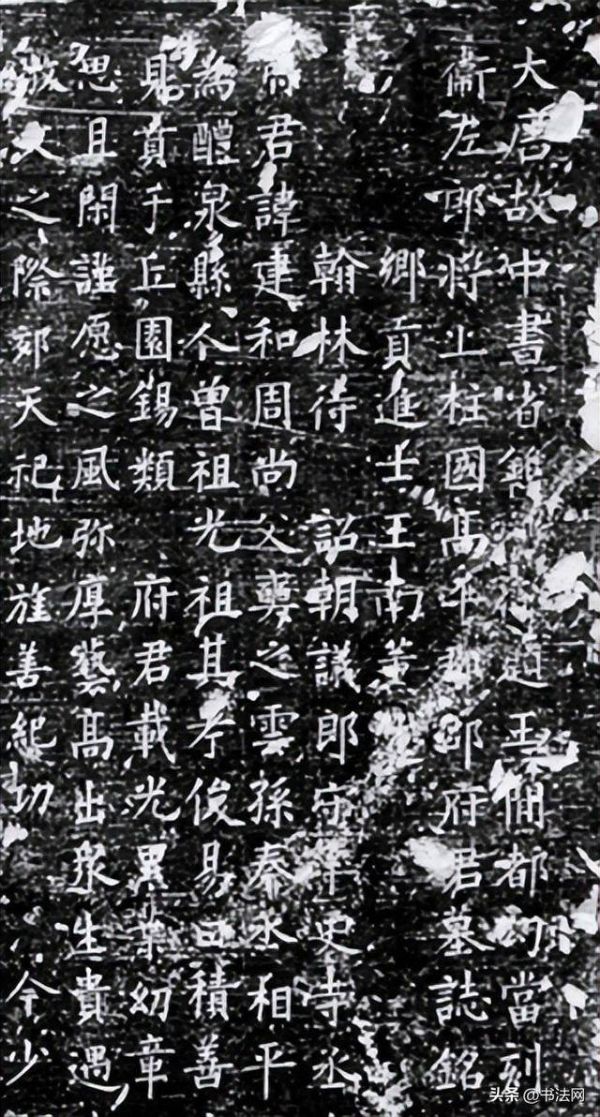 大唐故中書省王都勾當刻
衛左郎將上柱國高平郡邵府君墓誌銘
鄉貢進士王南
翰林待詔朝議郎守史寺丞
君諱建和周尚父奭之雲孫秦丞相平
為醴泉縣人曾祖光祖其考俊易曰積善
見賁于丘園錫類府君載光異葉幼章
思且閑謹愿之風弥厚藝高出衆生貴遇
文之際郊天祀地旌善紀功今少
头条 @书法网